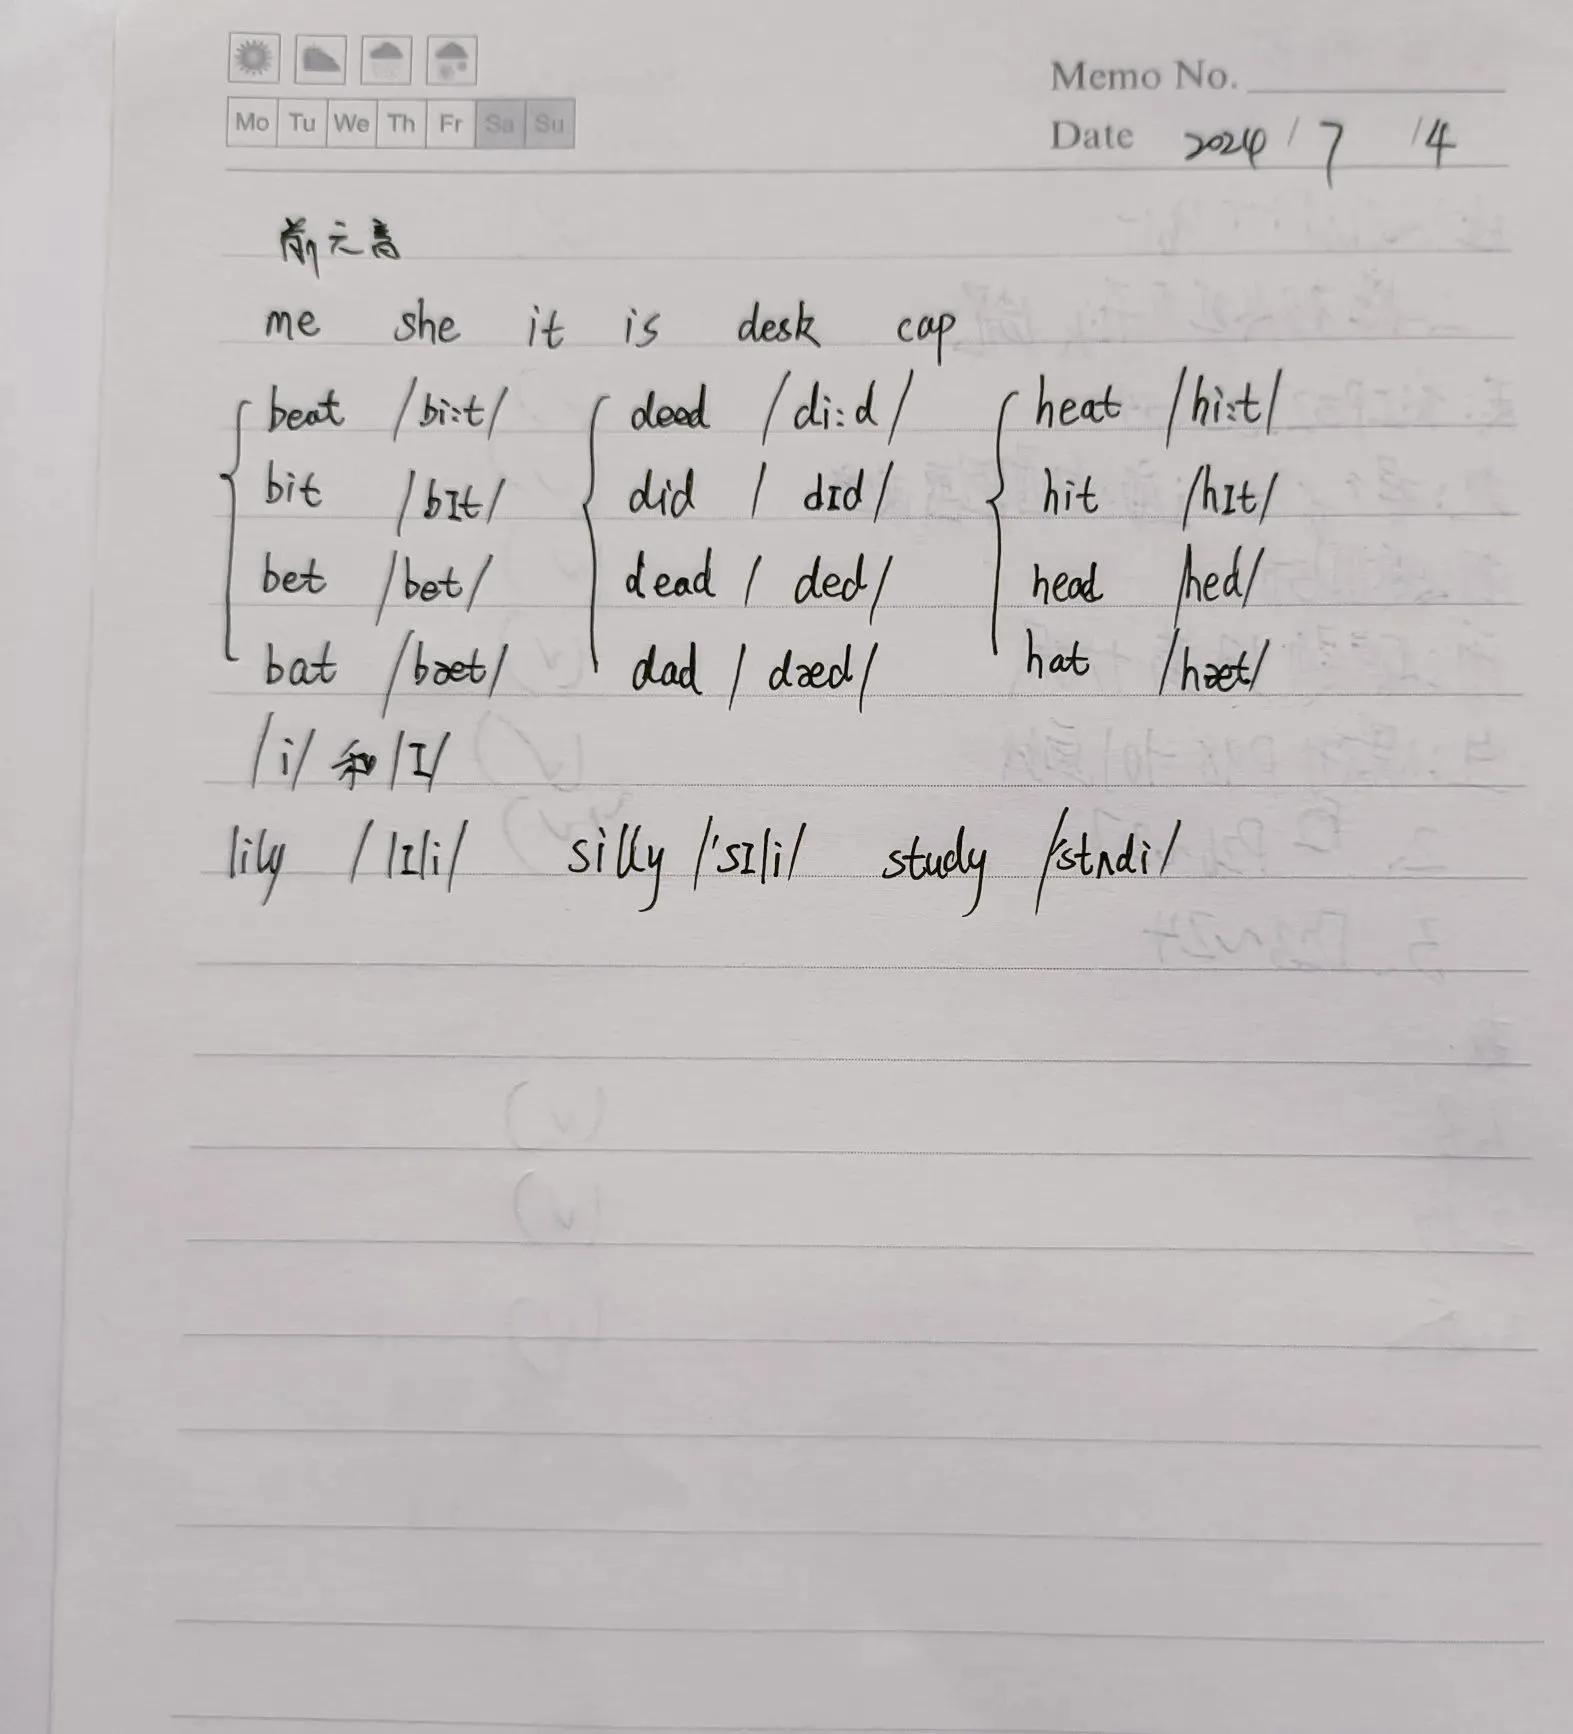 Memo No.
Mo Tu We Th Fr Sa Su
Date 2024/7/4
前元音
me she it is desk cap
beat /bi:t/ deed /di:d/ heat /hi:t/
bit /bɪt/ did /dɪd/ hit /hɪt/
bet /bet/ dead /ded/ head /hed/
bat /bæt/ dad /dæd/ hat /hæt/
/i/ 和 /ɪ/
lily /lɪli/ silly /'sɪli/ study /'stʌdi/